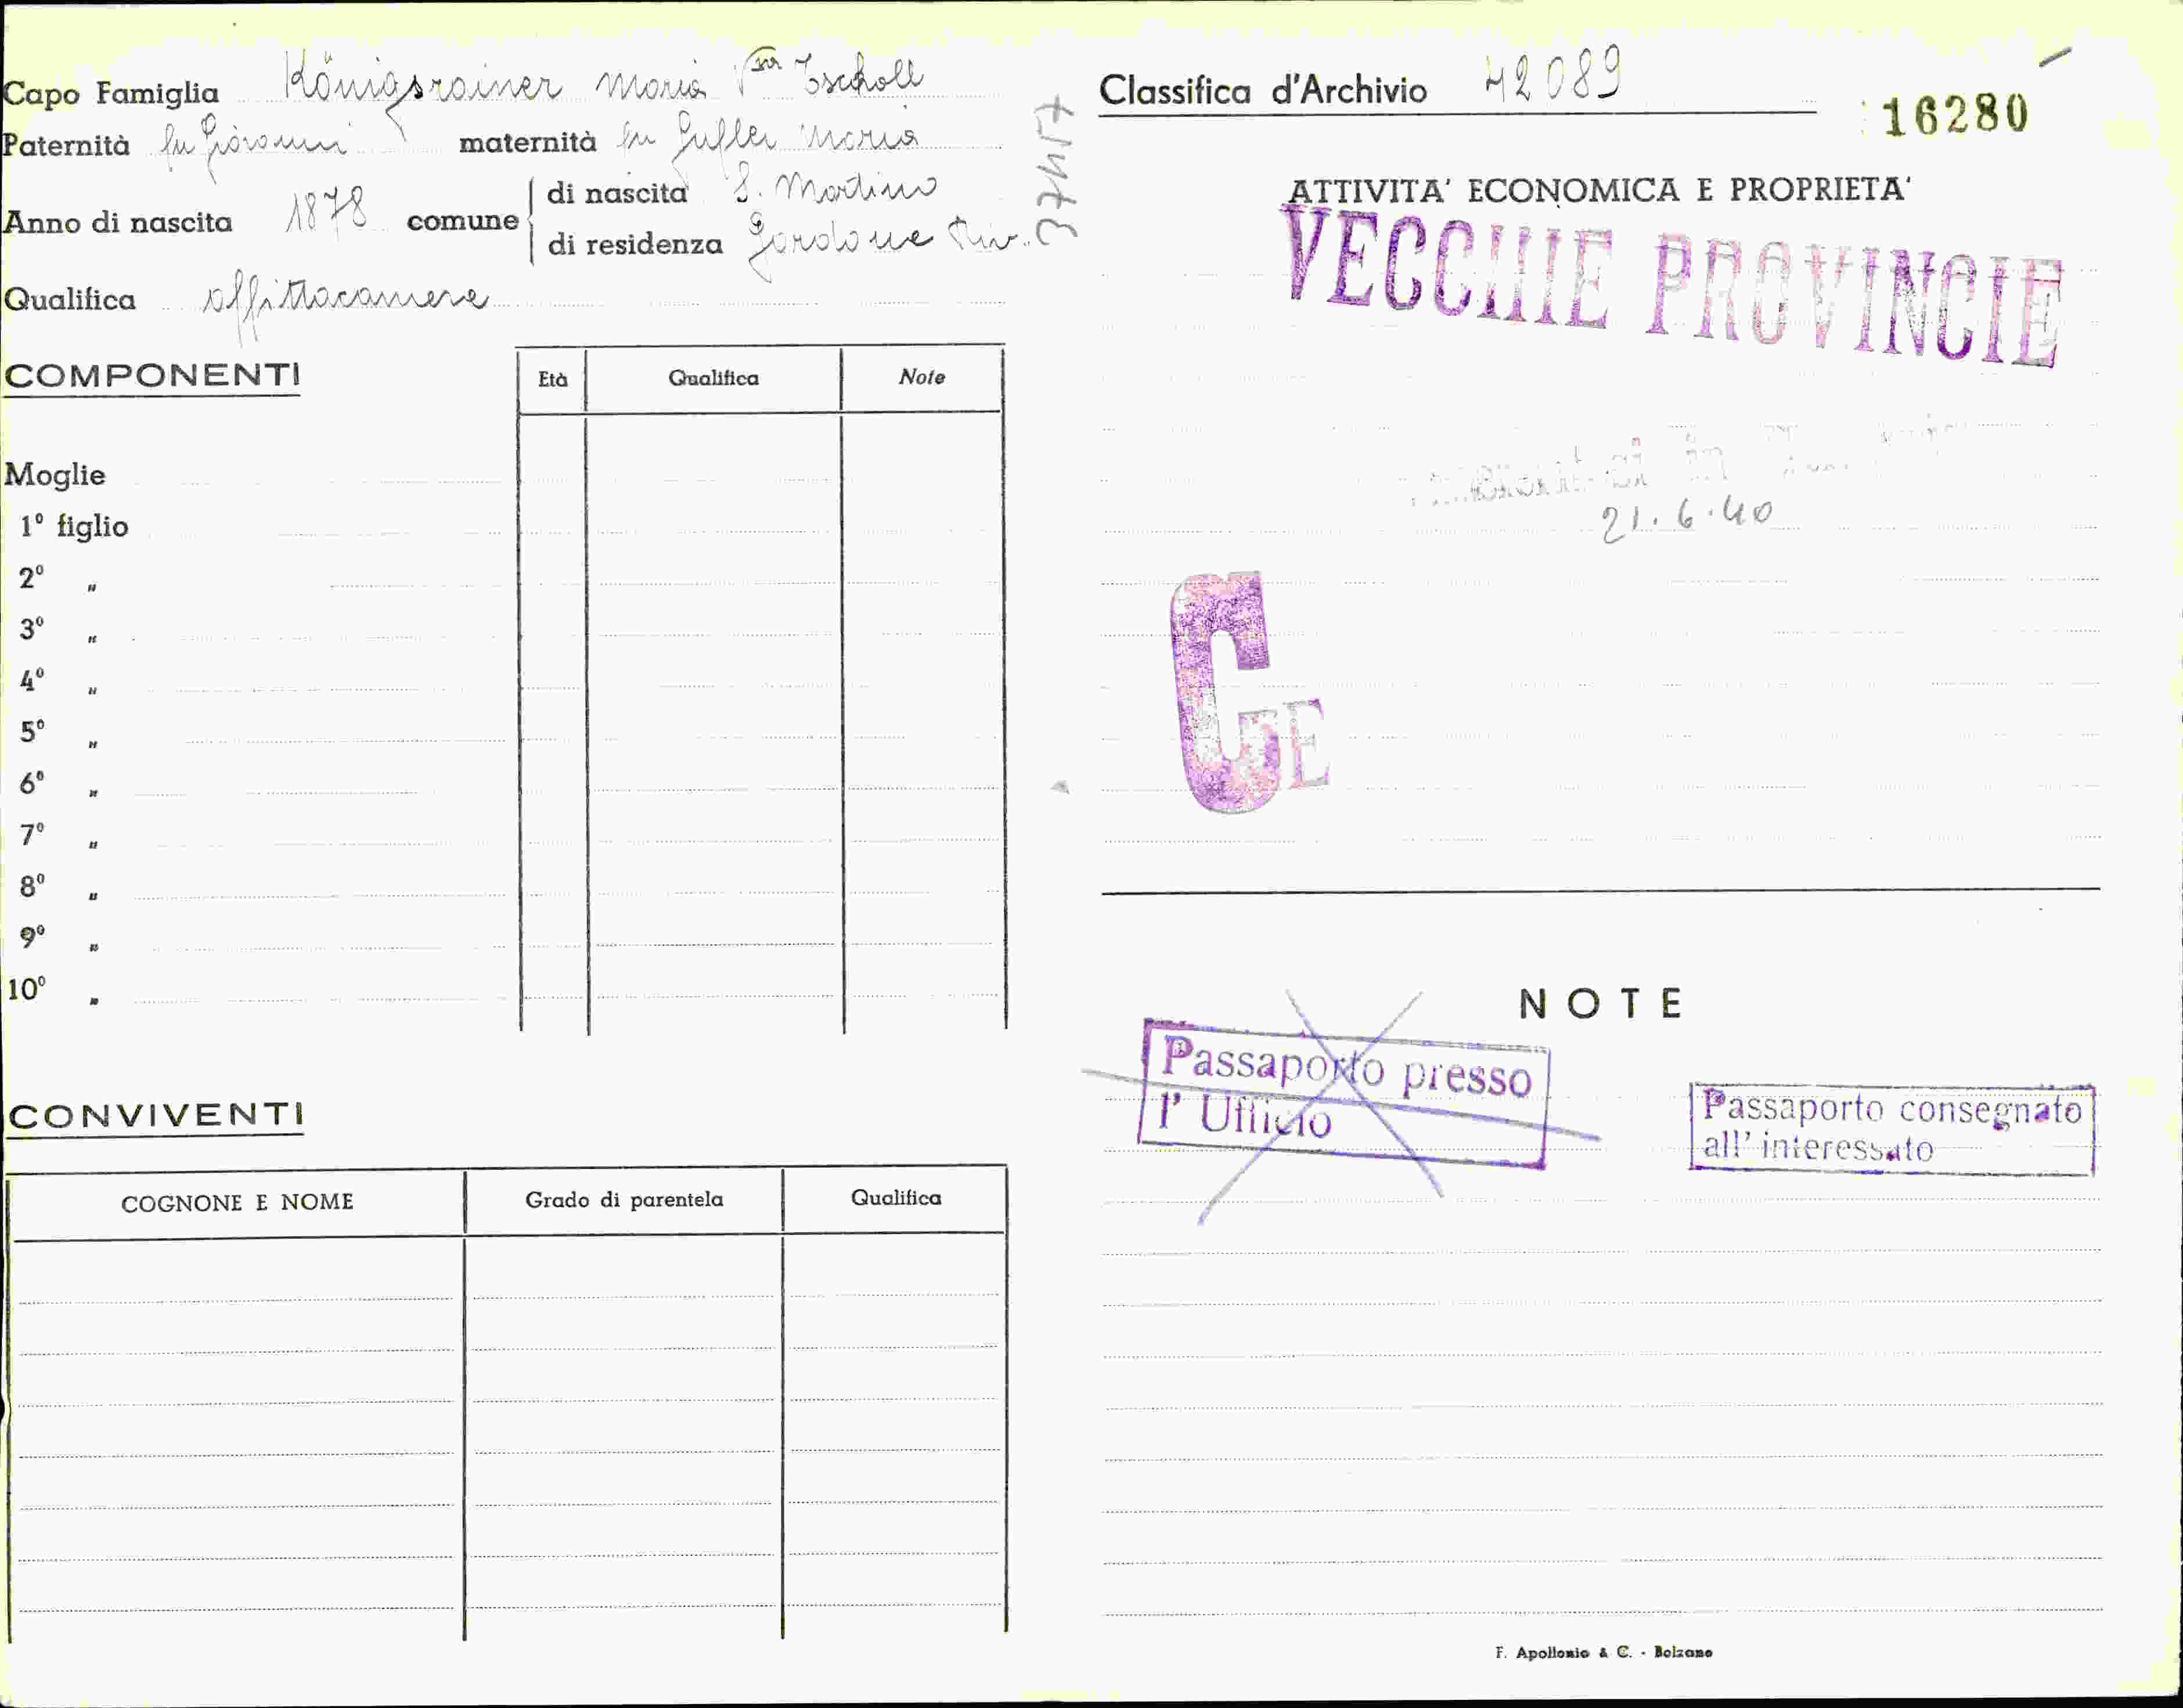 Capo Famiglia Königsrainer Maria V.va Tscholl
Paternità fu Giovanni maternità fu Gufler Maria
Anno di nascita 1878 comune di nascita S. Martino
di residenza Gardone Riv.
Qualifica affittacamere
37457
COMPONENTI
Età Qualifica Note
Moglie
1º figlio
2º "
3º "
4º "
5º "
6º "
7º "
8º "
9º "
10º "
CONVIVENTI
COGNONE E NOME Grado di parentela Qualifica
Classifica d'Archivio 42089
16280
ATTIVITA' ECONOMICA E PROPRIETA'
VECCHIE PROVINCIE
21.6.40
CE
NOTE
Passaporto presso
l' Ufficio
Passaporto consegnato
all' interessato
F. Apollonio & C. - Bolzano